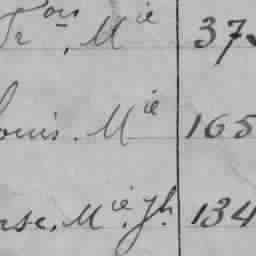 Fr ois, M ie 373
ouis. M ie 165
rse. M ie. Jh. 134